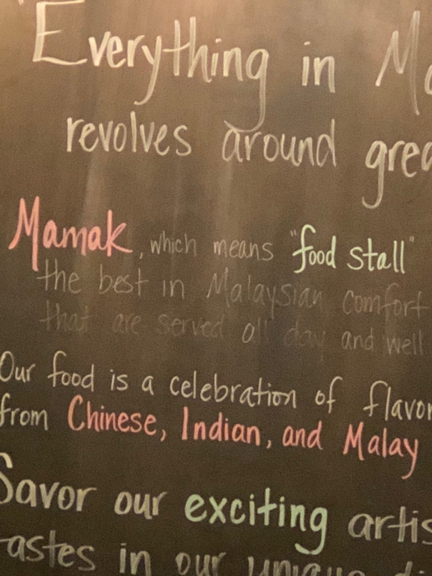 Everything in
revolves around
Mamak, which means "food stall"
the best in Malaysian comfort
that are served all day and well
Our food is a celebration of flavor
from Chinese, Indian, and Malay
Savor our exciting
in our